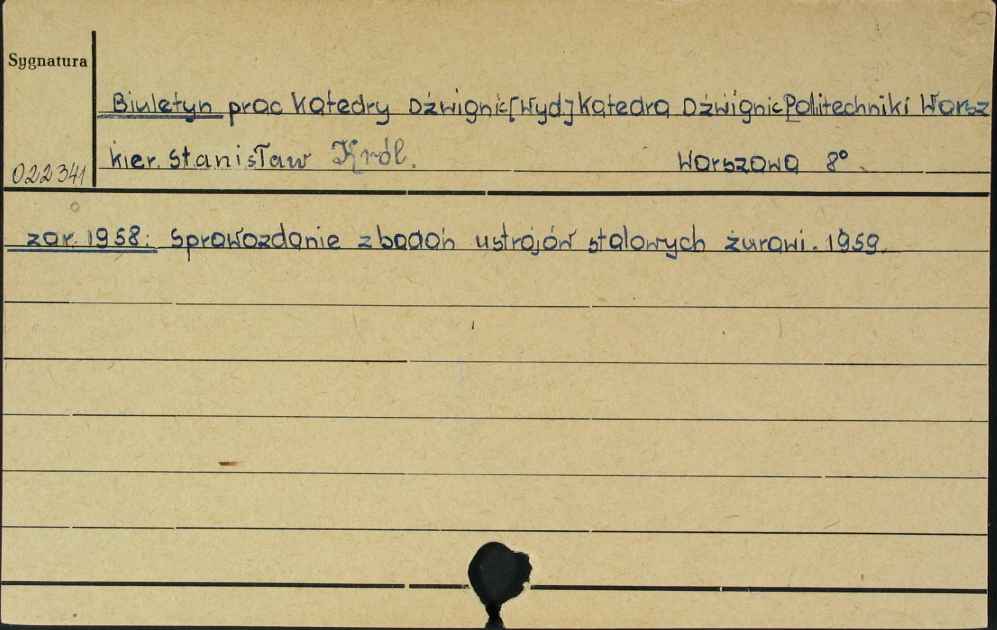 Sygnatura
Biuletyn prac Katedry Dźwignic [Wyd] Katedra Dźwignic Politechniki Warsz
kier. Stanisław Król. Warszawa 8°
022341
zar. 1958: Sprawozdanie z badań ustrojów stalowych żurawi. 1959.